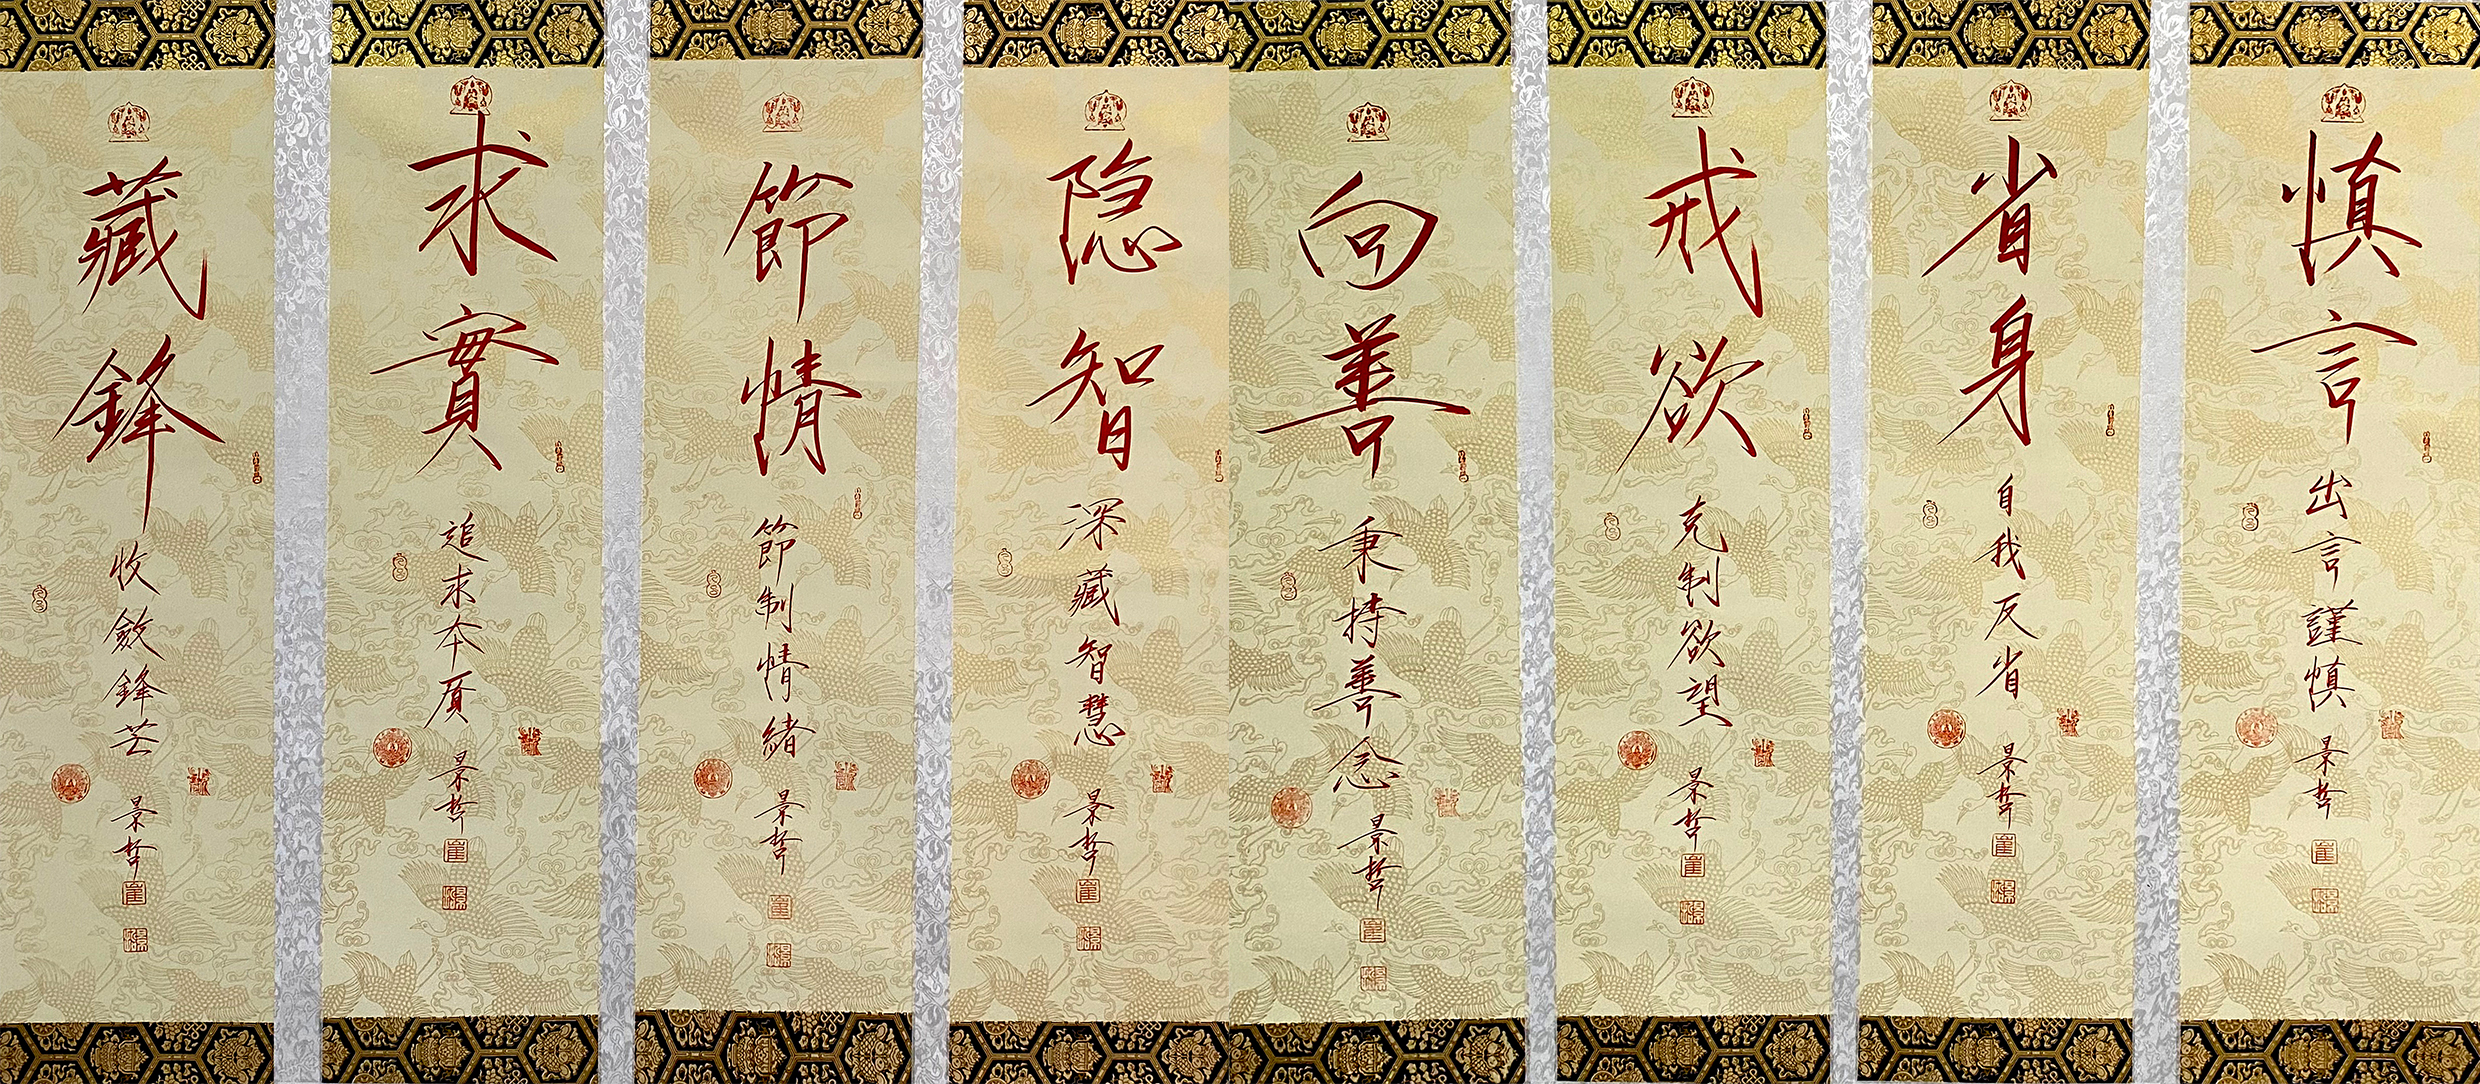 慎言 出言謹慎 景哲
省身 自我反省 景哲
戒欲 克制欲望 景哲
向善 秉持善念 景哲
隐智 深藏智慧 景哲
節情 節制情緒 景哲
求實 追求本質 景哲
藏鋒 收斂鋒芒 景哲